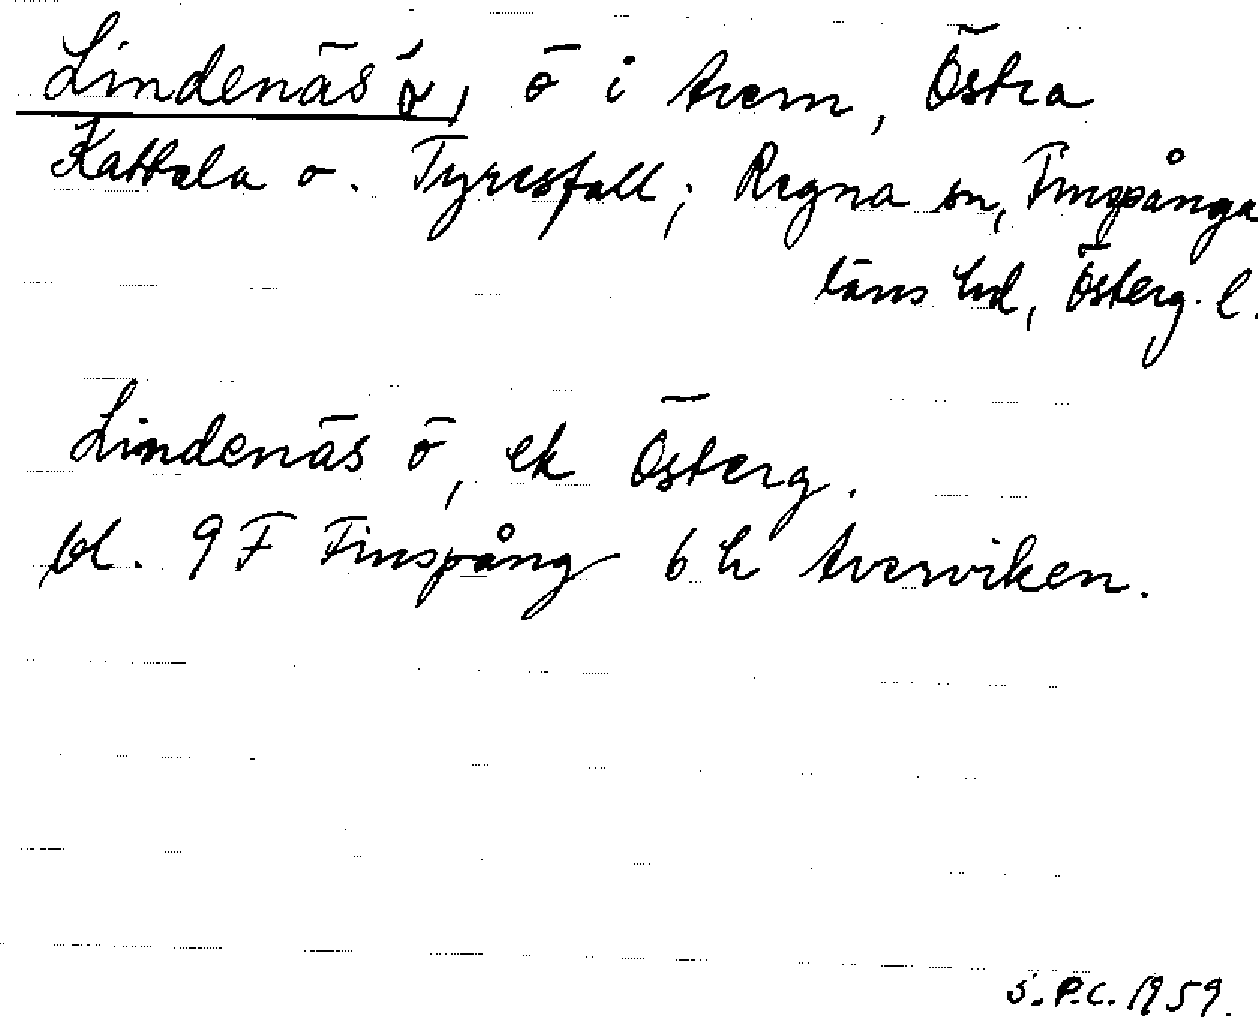 Lindenäs ö, ö i Avern, Östra
Kattala o. Tyresfall; Regna sn, Finspånga
läns hd, Österg. l.
Lindenäs ö, ek Österg.
bl. 9 F Finspång 6 h Averviken.
S.P.C. 1959.